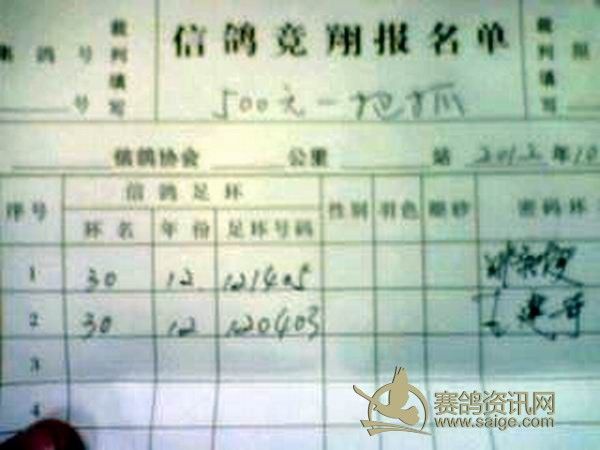 集鸽号 裁判填写 信鸽竞翔报名单 裁判填写
号 500元一把抓
信鸽协会 公里 站 2012年10
序号 信鸽足环 性别 羽色 眼砂 密码环
环名 年份 足环号码
1 30 12 121405
2 30 12 120403
3
4
赛鸽资讯网
www.saige.com